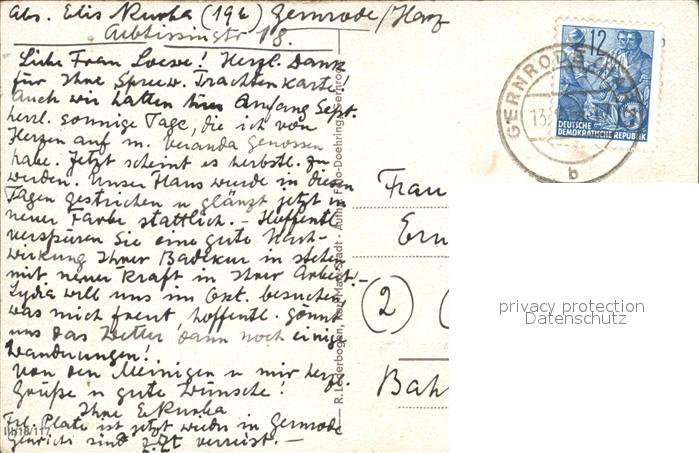 Abs. Elis Kurka (19b) Gernrode/Harz
Äbtissinstr 18.
Liebe Frau Loewe! Herzl. Dank
für Ihre Spreew. Trachtenkarte!
Auch wir hatten Anfang Sept.
herrl. sonnige Tage, die ich von
Herzen auf m. Veranda genossen
habe. Jetzt scheint es herbstl. zu
werden. Unser Haus wurde in diesen
Tagen gestrichen u glänzt jetzt in
neuer Farbe stattlich. – Hoffentl.
verspüren Sie eine gute Nach-
wirkung Ihrer Badekur in stehen
mit neuer Kraft in Ihrer Arbeit. –
Lydia will uns im Okt. besuchen,
was mich freut, hoffentl. gönnt
uns das Wetter dann noch einige
Wanderungen!
Von den Meinigen u mir herzl.
Grüße u gute Wünsche!
Ihre E Kurka
Frl. Plate ist jetzt wieder in Gernrode
sind z. Zt verreist. –
II/18/117
R. Lederbogen, Halberstadt - Aufn.: Foto-Doehring, Gernrode
12
DEUTSCHE
DEMOKRATISCHE REPUBLIK
GERNRODE (HARZ)
13.
b
Frau
Ern
(2)
Bah
privacy protection
Datenschutz